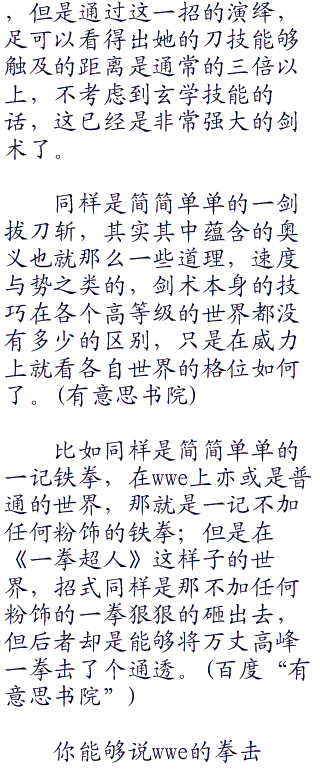 ，但是通过这一招的演绎，
足可以看得出她的刀技能够
触及的距离是通常的三倍以
上，不考虑到玄学技能的
话，这已经是非常强大的剑
术了。
同样是简简单单的一剑
拔刀斩，其实其中蕴含的奥
义也就那么一些道理，速度
与势之类的，剑术本身的技
巧在各个高等级的世界都没
有多少的区别，只是在威力
上就看各自世界的格位如何
了。(有意思书院)
比如同样是简简单单的
一记铁拳，在wwe上亦或是普
通的世界，那就是一记不加
任何粉饰的铁拳；但是在
《一拳超人》这样子的世
界，招式同样是那不加任何
粉饰的一拳狠狠的砸出去，
但后者却是能够将万丈高峰
一拳击了个通透。(百度“有
意思书院”)
你能够说wwe的拳击